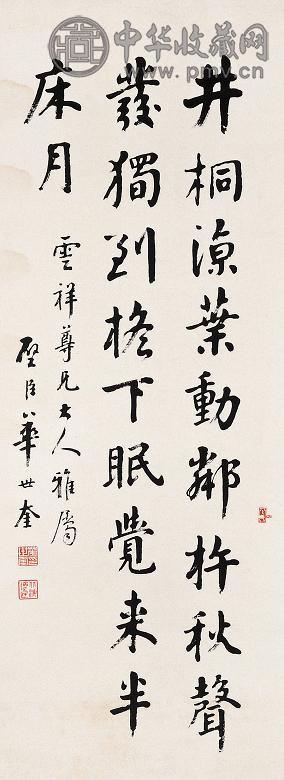 中华收藏网
www.pmv.cn
井桐涼葉動鄰杵秋聲
發獨到檐下眠覺来半
床月
雲祥尊兄大人雅屬
璧臣華世奎